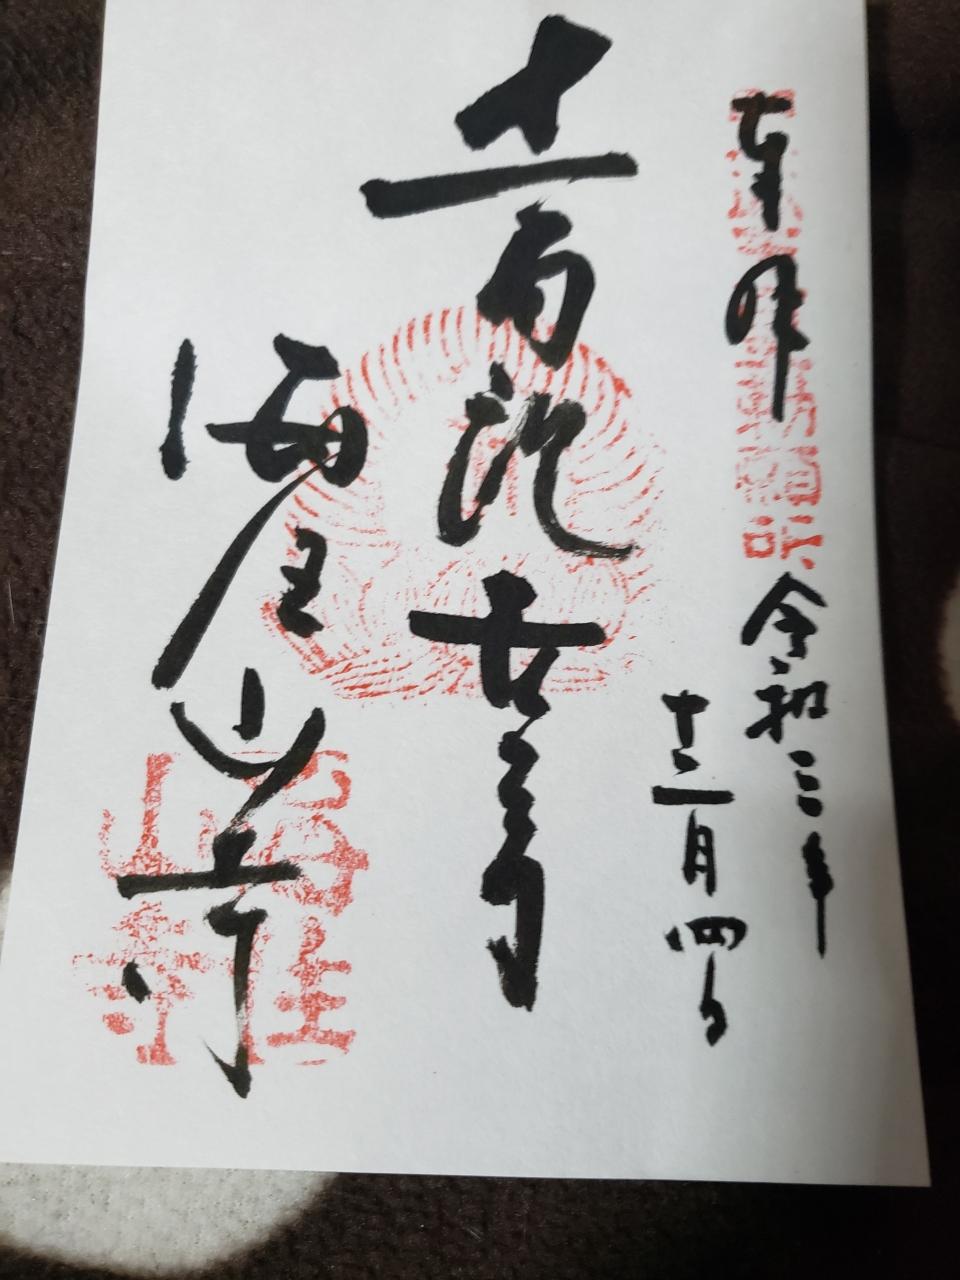 奉拝
令和三年
十二月四日
十一面観世音
海住山寺
海住
山寺